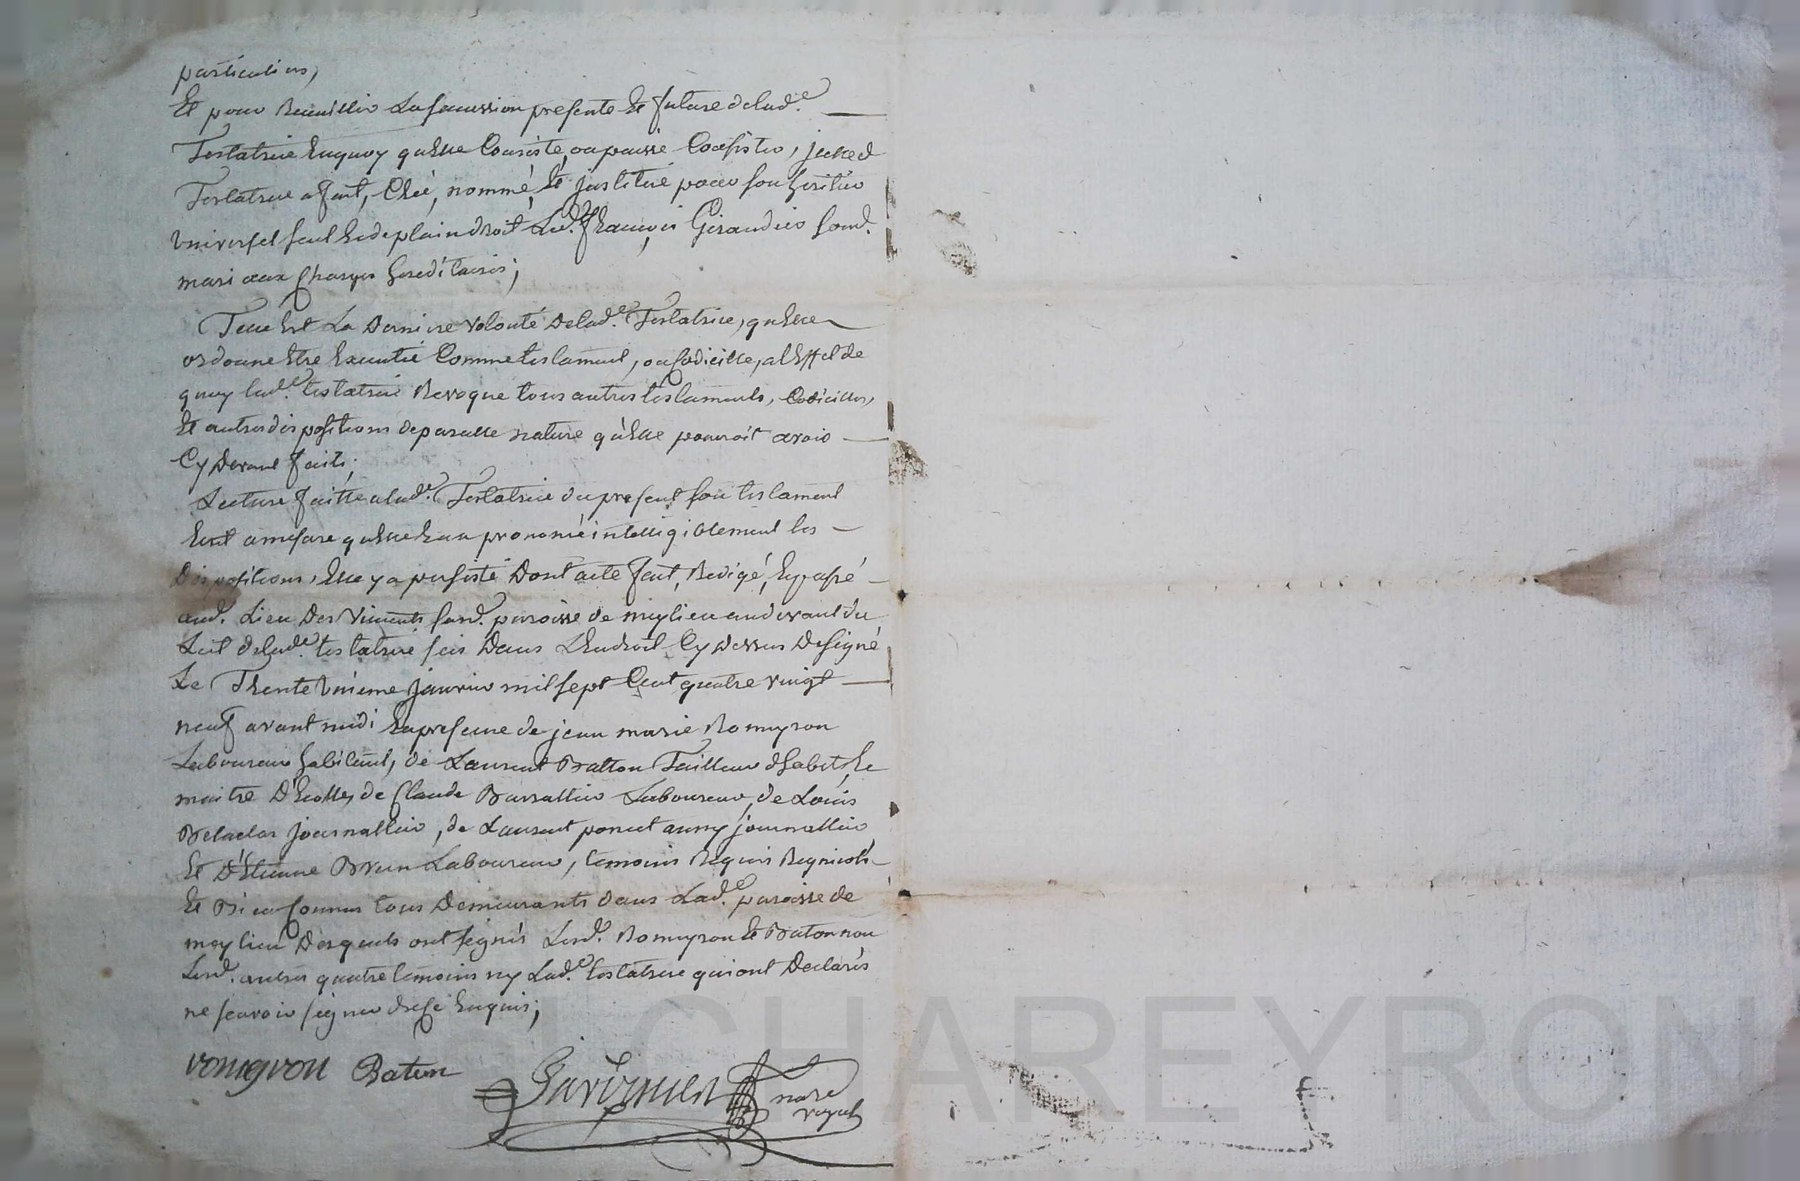 particuliers,
Et pour Recuillir La sucession presente Et future de lad.e
Testatrice Enquoy quElle Consiste, ou puisse Consister, jcelle d
Testatrice a fait, Créé, nommé, Et jnstitué pour son heritier
Universel seul Et de plain droit Led. fRançois Giraudier sond.
mari aux Charges hereditaires;
Telle Est La Derniere Volonté De lad.e Testatrice, quElle
ordonne Etre Executée Comme testament, ou Codicille, a lEffet de
quoy lad.e testatrice Revoque tous autres testaments, Codicilles,
Et autres dispositions de pareille nature quElle pourroit avoir
Cy Devant faits;
Lecture faitte a lad.e Testatrice du present son testament
Ent a mesure quElle En a prononcé intelligiblement les
Dispositions, Elle y a persisté Dont acte fait, Redigé, Et passé
aud. Lieu Des Vincents susd. paroisse de meylieu au devant du
Lit de lad.e testatrice sis Dans LEndroit Cy dessus Designé
Le Trente Unieme janvier mil sept Cent quatre vingt
neuf avant midi En presence de jean marie Romeyron
Laboureur habitant, de Laurent Batton Tailleur dhabits, Et
maitre DEcolle, de Claude Barrallier Laboureur, de Louis
journallier, de Laurent poncet aussy journallier
Et DEtienne Brun Laboureur, temoins Requis Regnicoles
Et Bien Connus tous Demeurants dans Lad.e paroisse de
meylieu Desquels ont signés Lesd. Romeyron Et Baton non
Lesd. autres quatre temoins ny Lad.e testatrice qui ont Declarés
ne scavoir signer de ce Enquis;
romeyron Baton
notre
royal
CHAREYRON